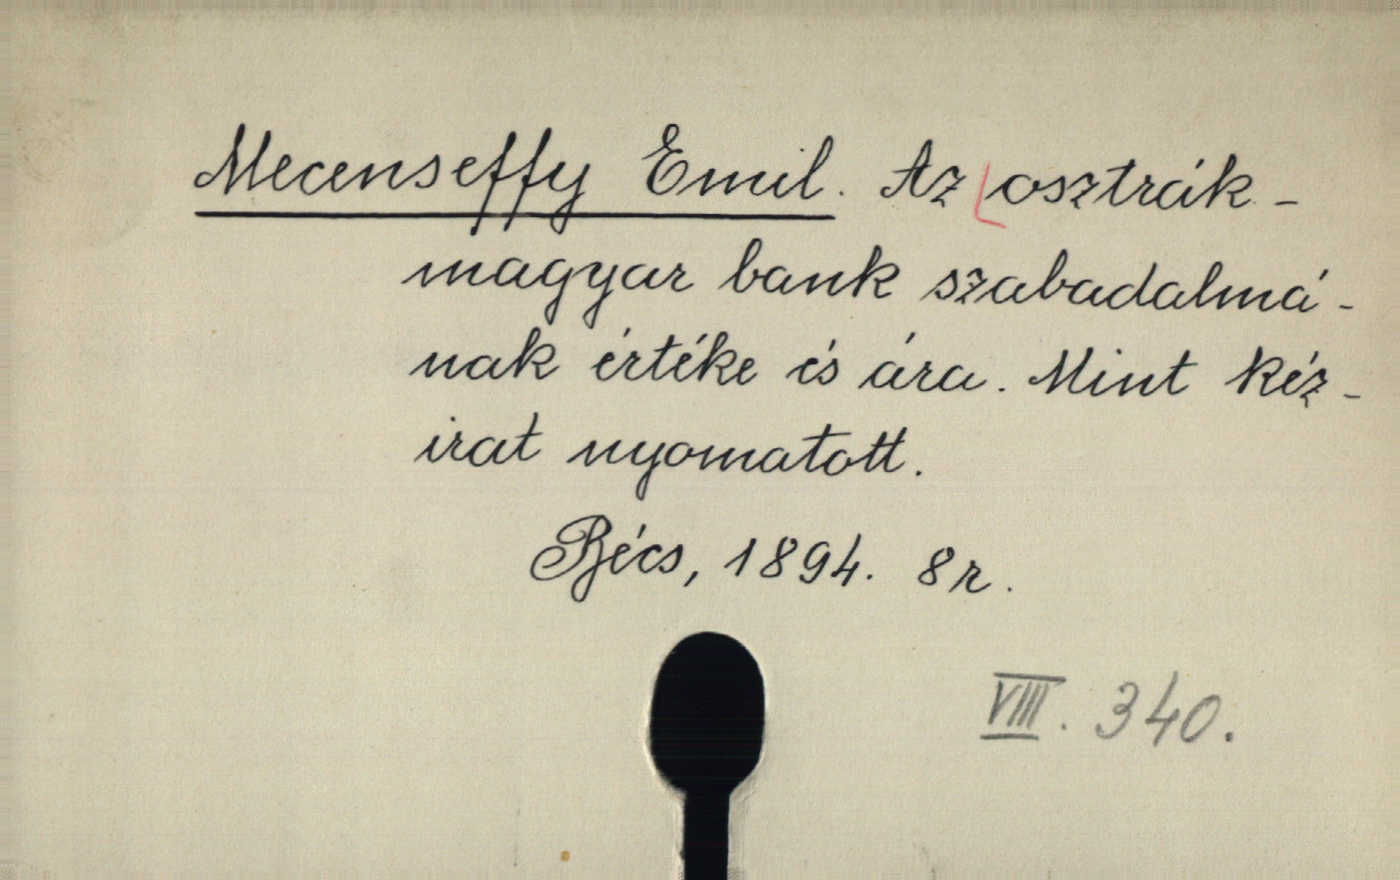 Mecenseffy Emil. Az osztrák-
magyar bank szabadalmá-
nak értéke és ára. Mint kéz-
irat nyomatott.
Bécs, 1894. 8r.
VIII. 340.